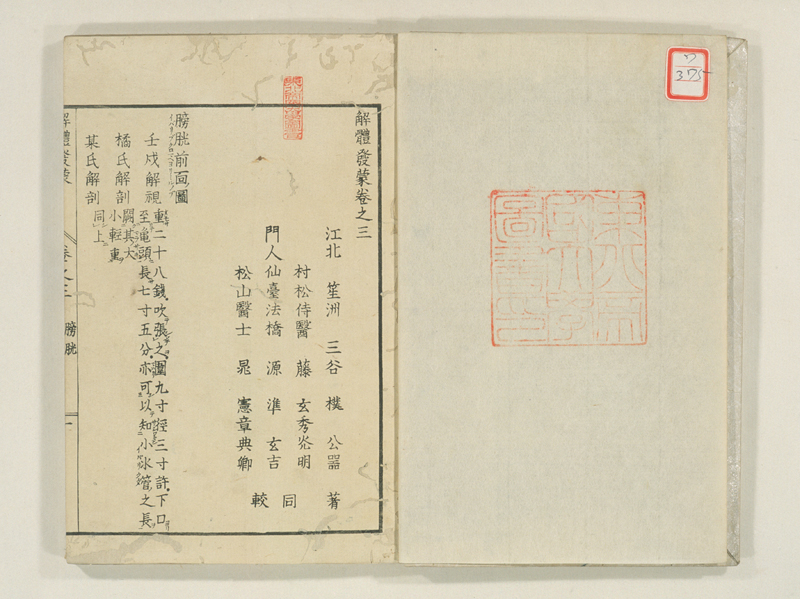 ワ
375
東北帝
國大學
圖書印
解體發蒙卷之三
江北 笙洲 三谷 樸 公器 著
村松侍醫 藤 玄秀 炎明
門人仙臺法橋 源 準 玄吉 同
松山醫士 晁 憲章 典卿 較
膀胱前面圖
壬戍解視 重二十八錢吹張之圍九寸徑三寸許下口
至龜頭長七寸五分亦可以知小水管之長
橘氏解剖 闕其大
小輕重
某氏解剖 同上
解體發蒙 卷之三 膀胱 一